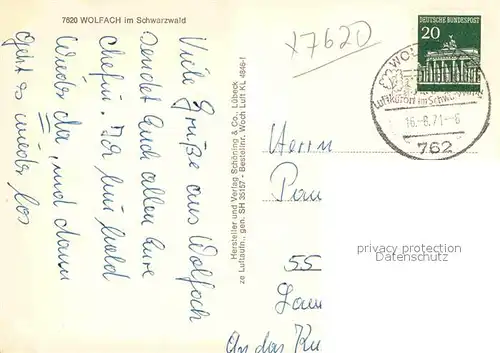 7620 WOLFACH im Schwarzwald
x7620
Viele Grüße aus Wolfach
sendet Euch allen Eure
Chefin. Ich bin bald
wieder da, und dann
geht es wieder los
Hersteller und Verlag Schöning & Co., Lübeck
ze Luftaufn., gen. SH 35157 - Bestellnr. Woch Luft KL 4846-f
DEUTSCHE BUNDESPOST
20
WOL
Luftkurort im Schw
16.-8.71.-8
762
Herrn
55
An das
privacy protection
ansichtskarten-center.de